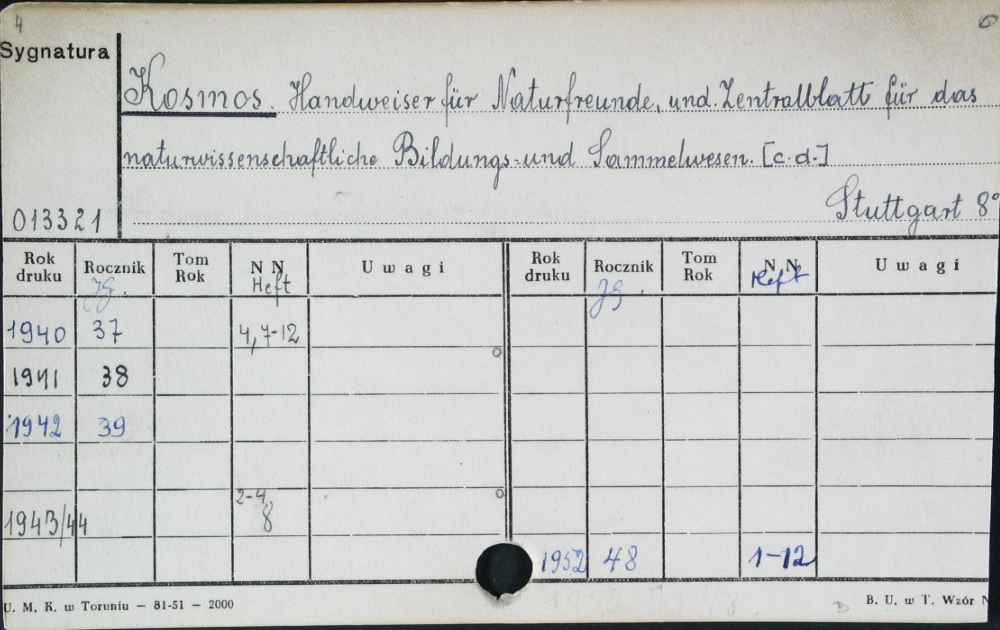 4
Sygnatura
Kosmos. Handweiser für Naturfreunde, und Zentralblatt für das
naturwissenschaftliche Bildungs- und Sammelwesen. [c.d.]
013321 Stuttgart 8°
Rok druku Rocznik Tom Rok N N Uwagi Rok druku Rocznik Tom Rok N N Uwagi
Jg. Heft Jg. Heft
1940 37 4, 7-12
1941 38
1942 39
1943/44 2-4, 8
1952 48 1-12
U. M. K. w Toruniu — 81-51 — 2000 B. U. w T. Wzór N